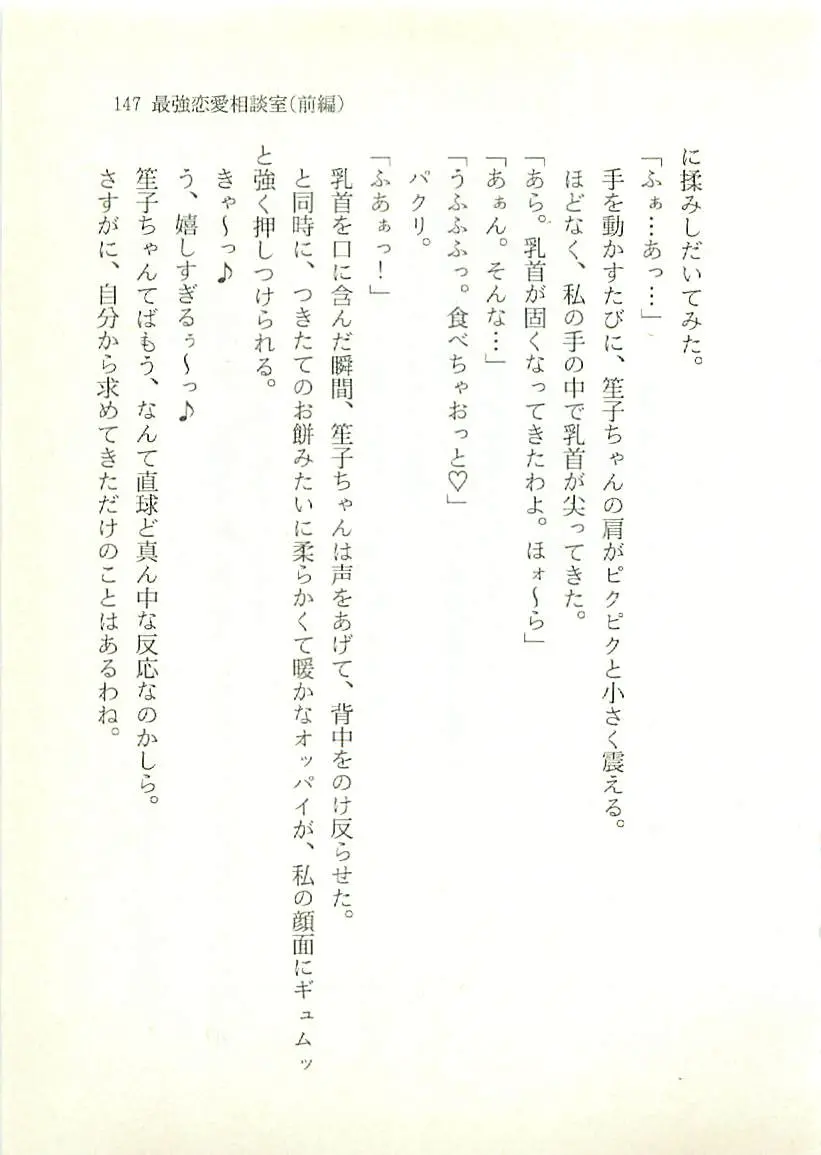 147 最強恋愛相談室(前編)
に揉みしだいてみた。
「ふぁ…あっ…」
手を動かすたびに、笙子ちゃんの肩がピクピクと小さく震える。
ほどなく、私の手の中で乳首が尖ってきた。
「あら。乳首が固くなってきたわよ。ほォ～ら」
「あぁん。そんな…」
「うふふふっ。食べちゃおっと♡」
パクリ。
「ふあぁっ！」
乳首を口に含んだ瞬間、笙子ちゃんは声をあげて、背中をのけ反らせた。
と同時に、つきたてのお餅みたいに柔らかくて暖かなオッパイが、私の顔面にギュムッ
と強く押しつけられる。
きゃ～っ♪
う、嬉しすぎるぅ～っ♪
笙子ちゃんてばもう、なんて直球ど真ん中な反応なのかしら。
さすがに、自分から求めてきただけのことはあるわね。